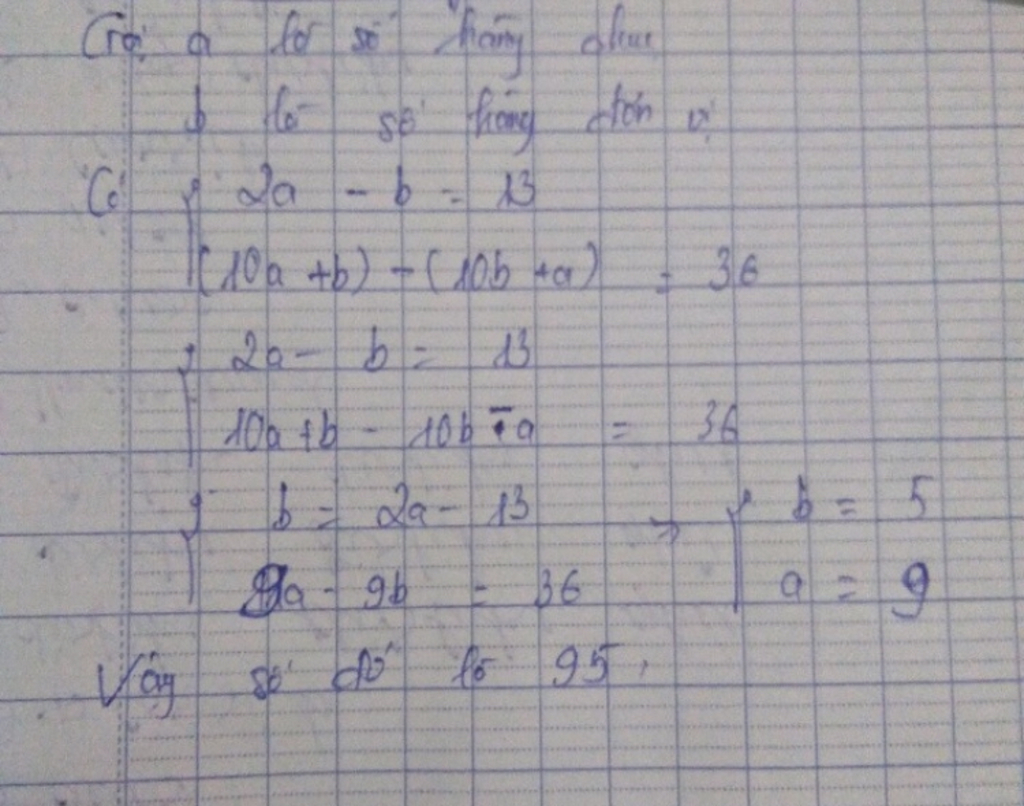 Gọi a là số hàng chục
b là số hàng đơn vị
Có { 2a - b = 13
(10a + b) - (10b + a) = 36
{ 2a - b = 13
10a + b - 10b - a = 36
{ b = 2a - 13 → { b = 5
9a - 9b = 36 a = 9
Vậy số đó là 95.